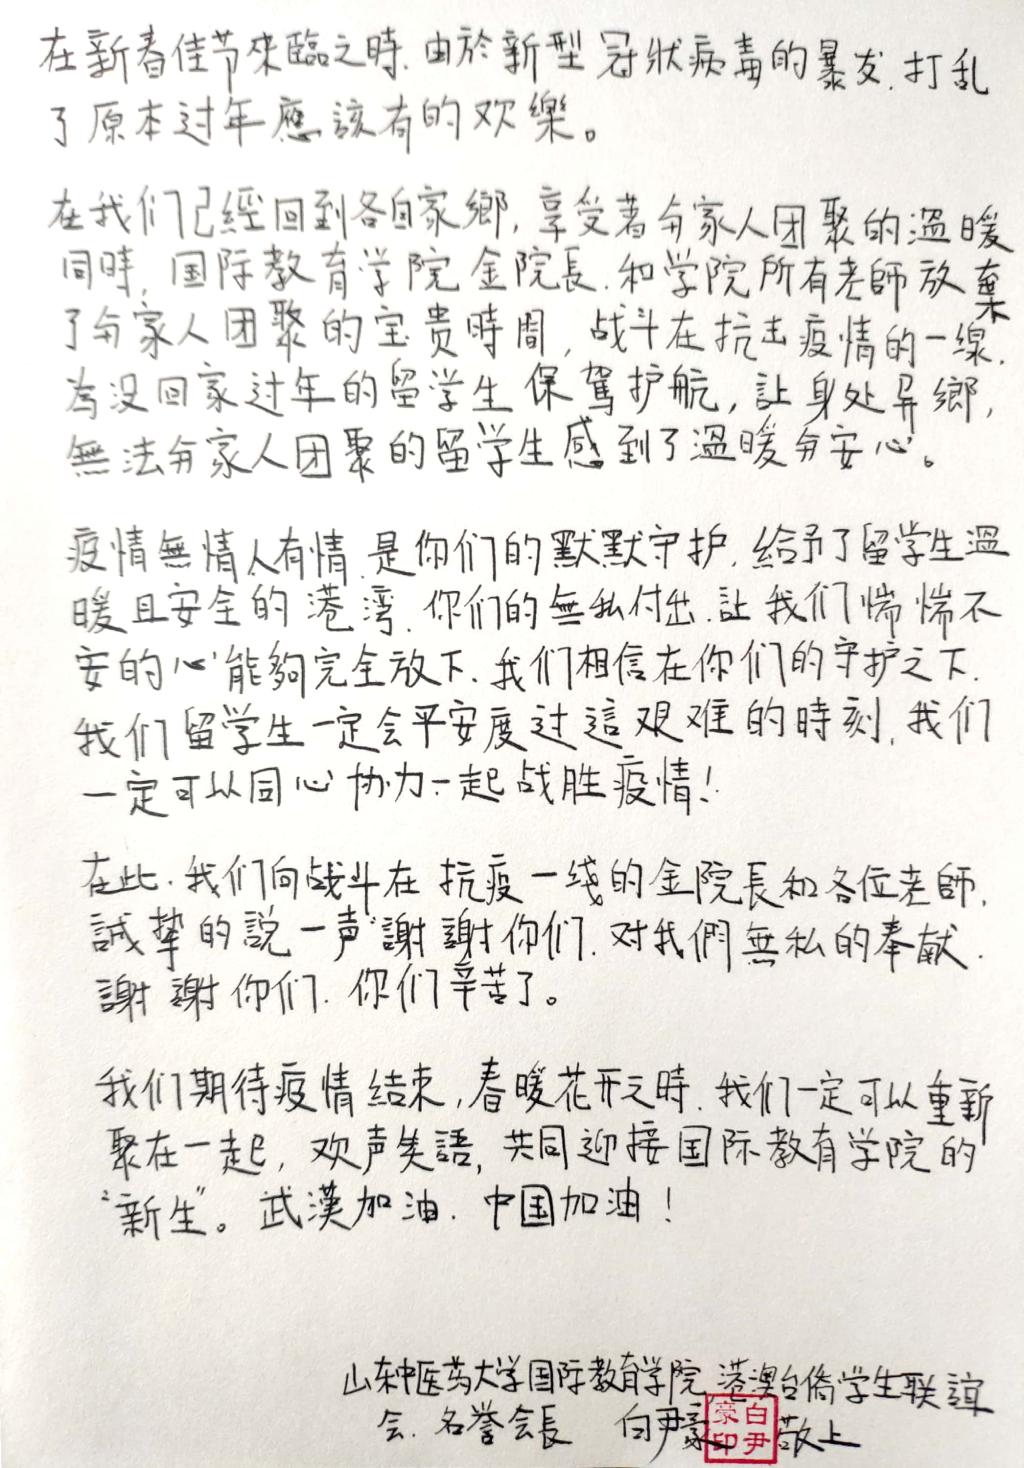 在新春佳节來臨之時.由於新型冠狀病毒的暴发.打乱
了原本过年應該有的欢樂。
在我们已經回到各自家鄉,享受著与家人团聚的溫暖
同時,国际教育学院金院長.和学院所有老師放棄
了与家人团聚的宝贵時間,战斗在抗击疫情的一線.
為没回家过年的留学生保駕护航,讓身处异鄉,
無法与家人团聚的留学生感到了溫暖与安心。
疫情無情人有情.是你们的默默守护.給予了留学生溫
暖且安全的港湾.你们的無私付出.让我们惴惴不
安的心能夠完全放下.我们相信在你们的守护之下.
我们留学生一定会平安度过這艰难的時刻.我们
一定可以同心协力一起战胜疫情!
在此.我们向战斗在抗疫一线的金院長和各位老師.
誠挚的說一声"謝謝你们.对我們無私的奉献.
謝謝你们.你们辛苦了。
我们期待疫情结束,春暖花开之時.我们一定可以重新
聚在一起,欢声笑語,共同迎接国际教育学院的
"新生"。武漢加油.中国加油!
山东中医药大学国际教育学院,港澳台僑学生联誼
会.名誉会長 白尹豪 敬上
白尹
豪印